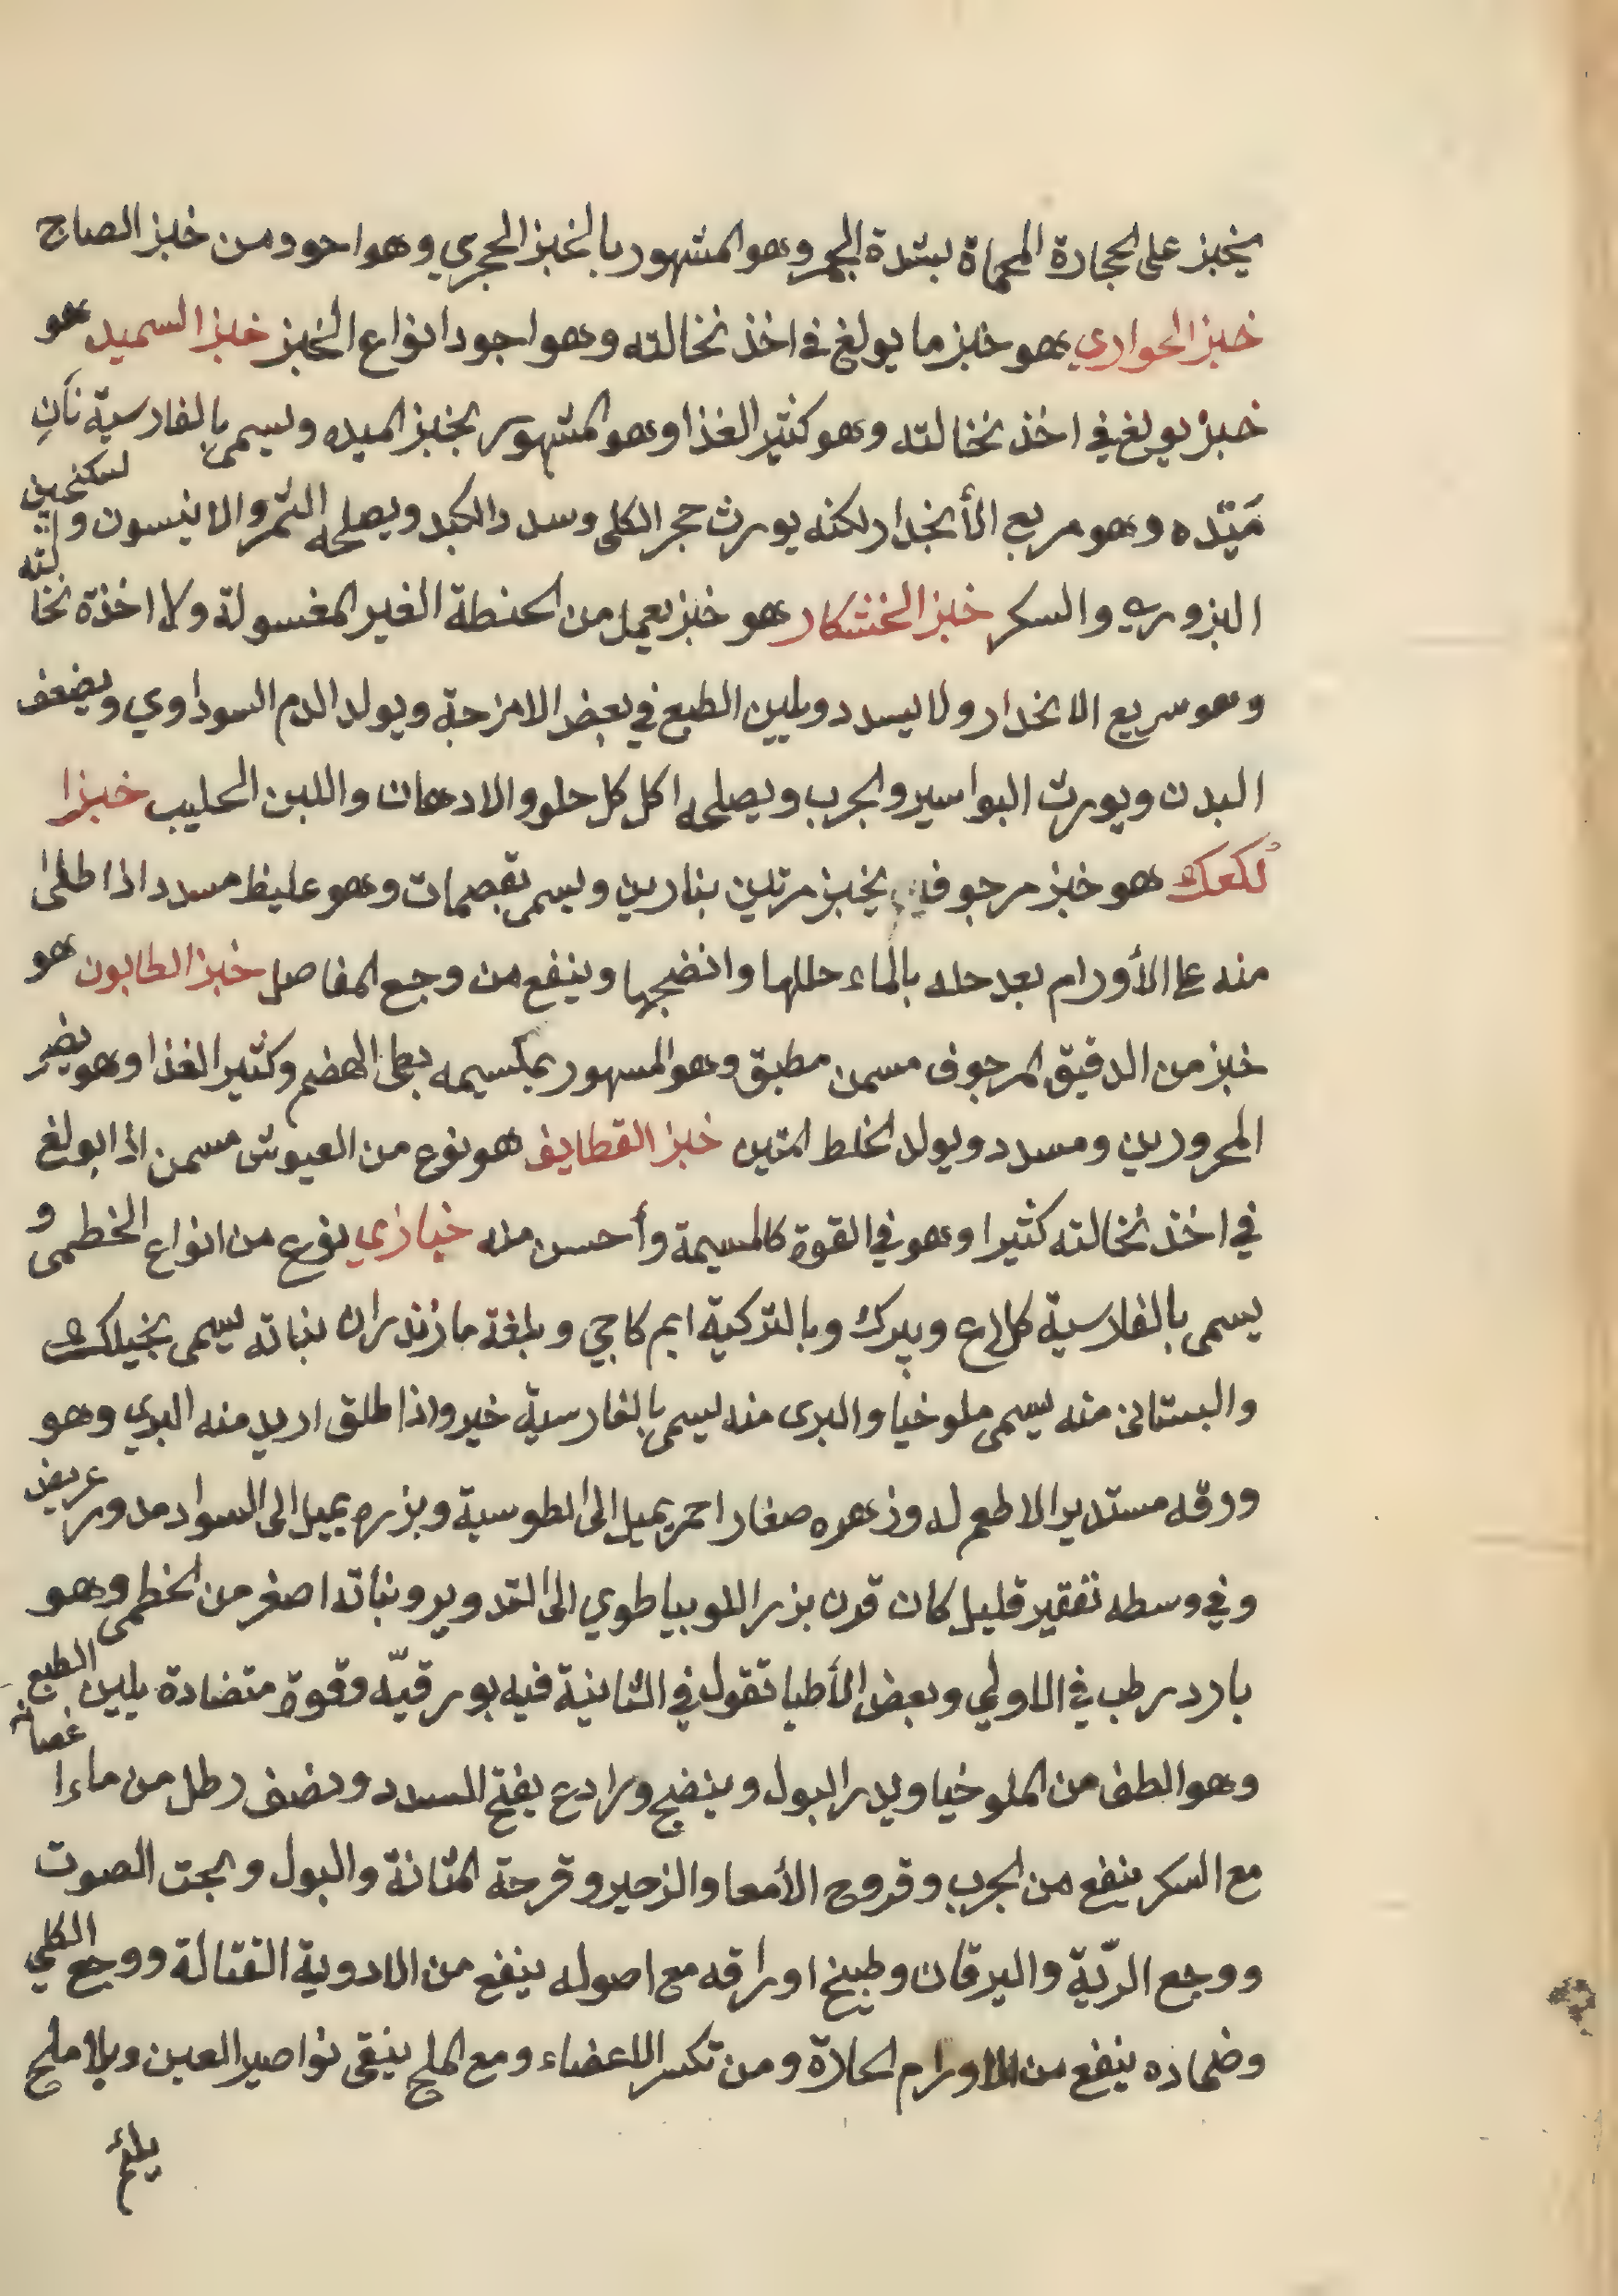 يخبز على الحجارة المحماة بشدة الجمر وهو المشهور بالخبز الحجري وهو احود من خبز الصاج
خبز الحواري هو خبز ما يولغ في اخذ نخالته وهو اجود انواع الخبز خبز السميد هو
خبز يولغ في اخذ نخالته وهو كثير الغذا وهو المشهور بخبز الميده ويسمى بالفارسية نان
مَيّده وهو مريع الأنخدار لكنه يورث حجر الكلى وسدد الكبد ويصلحه التمر والانيسون والسكنجبين
البزوري والسكر خبز الخشكار هو خبز يعمل من الحنطة الغير المغسولة ولا اخذة نخالته
وهو سريع الانخدار ولا يسدد ويلين الطبع في بعض الامزجة ويولد الدم السوداوي ويضعف
البدن ويورث البواسير والجرب ويصلحه اكل كل حلو والادهان واللبن الحليب خبز ا
لكعك هو خبز مرجوف يخبز مرتين بنارين ويسمى بقصمات وهو غليظ مسدد اذا طلى
منه على الأورام بعد حله بالماء حللها وانضجها وينفع من وجع المفاصل خبز الطابون هو
خبز من الدقيق المرجوف مسمن مطبق وهو المسهور بمكسيمه بطى الهضم وكثير الغذا وهو يضر
المحرورين ومسدد ويولد الخلط المتين خبز القطايف هو نوع من العيوش مسمن اذا بولغ
في اخذ نخالته كثيرا وهو في القوة كالمسيمة وأحسن منه خبازي نوع من انواع الخطمى و
يسمى بالفارسية كلاع ويپرك وبالتركية ابم كاجي وبلغة مازندران نباته يسمى بخيلك
والبستانى منه يسمى ملوخيا والبرى منه يسمى بالفارسية خيرو اذا طلق اريد منه البري وهو
ورقه مستدير الا طعم له وزهره صغار احمر يميل الى الطوسية وبزره يميل الى السواد مدور عريض
وفي وسطه تقير قليل كان قرن بزر اللوبيا طوي الى التدوير ونباته اصغر من الخطمى وهو
بارد رطب في الاولي وبعض الأطبا تقول في الثانية فيه بورقيّه وقوة متضادة يلين الطبع
وهو الطف من الملوخيا ويدر البول وينضج ورادع يفتح السدد ونصف رطل من ماء اغصانه
مع السكر ينفع من الجرب وقروح الأمعا والزحير وقرحة المثانة والبول وبحت الصوت
ووجع الريّة واليرقان وطبيخ اوراقه مع اصوله ينفع من الادوية القتالة ووجع الكلي
وضماده ينفع من الاورام الحارة ومن تكسر الاعضاء ومع الملح ينقى نواصير العين وبلا ملح
يلئم